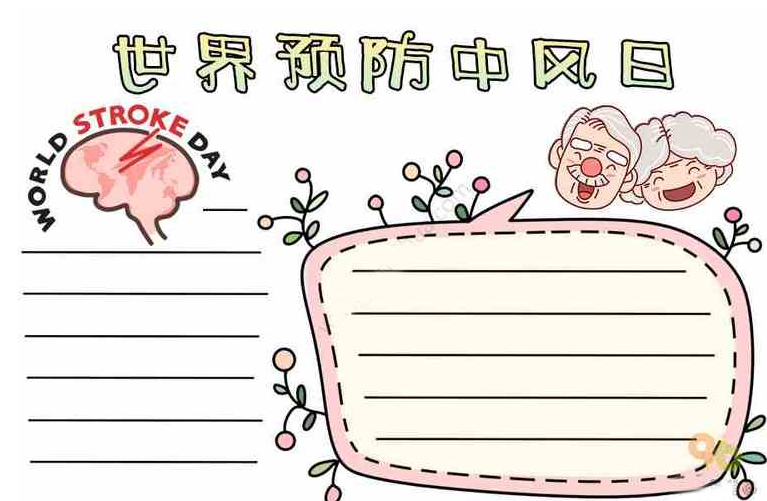 世界预防中风日
WORLD STROKE DAY